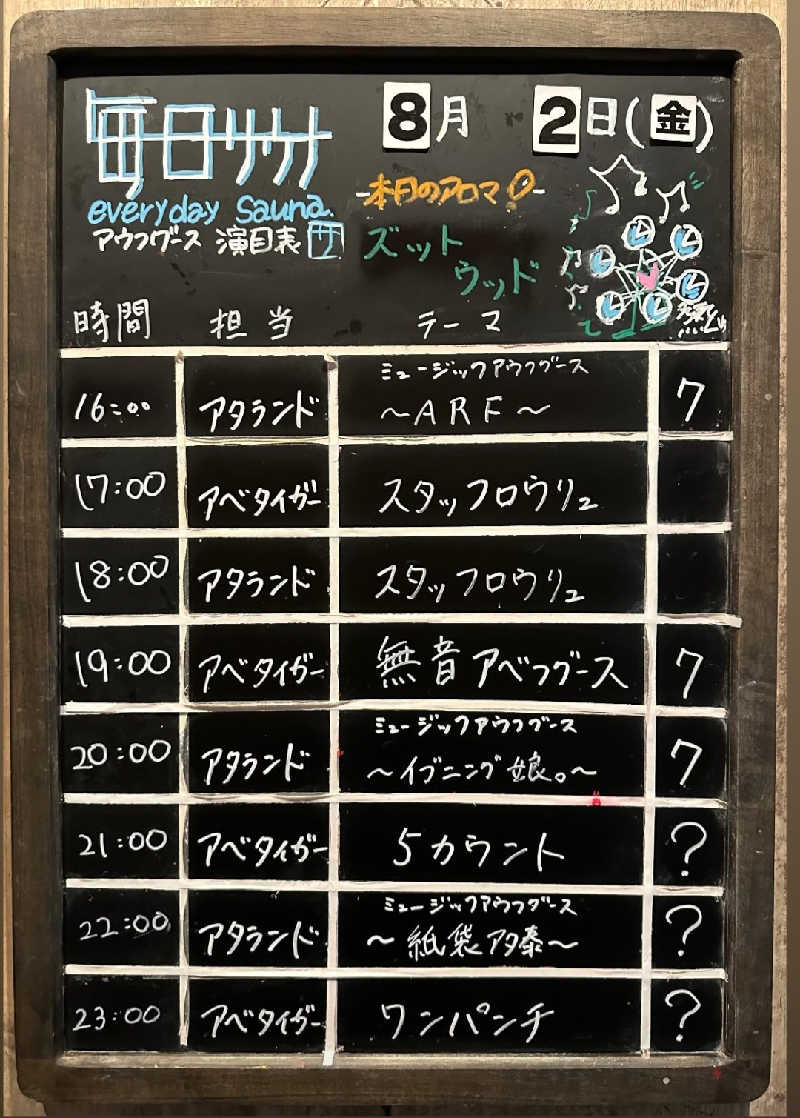 毎日サウナ
8月 2日(金)
everyday sauna.
アウフグース 演目表 サ
本日のアロマ!
ズットウッド
時間 担当 テーマ 熱
16:00 アタランド ミュージックアウフグース ～ARF～ 7
17:00 アベタイガー スタッフロウリュ
18:00 アタランド スタッフロウリュ
19:00 アベタイガー 無音アベフグース 7
20:00 アタランド ミュージックアウフグース ～イブニング娘。～ 7
21:00 アベタイガー 5カウント ?
22:00 アタランド ミュージックアウフグース ～紙袋アタ泰～ ?
23:00 アベタイガー ワンパンチ ?